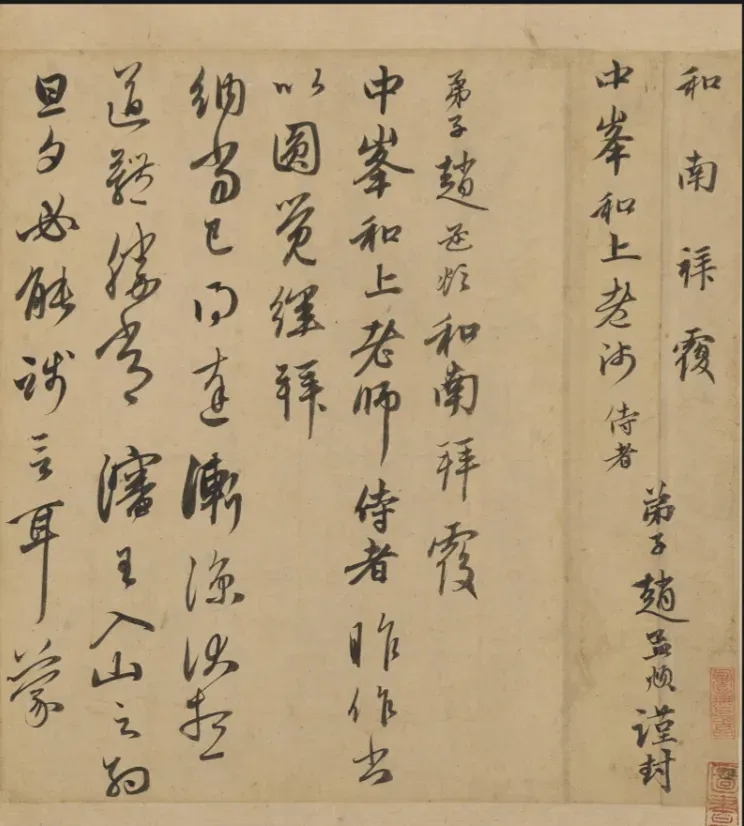 和南拜覆
中峯和上老師 侍者
弟子趙孟頫謹封
弟子趙孟頫和南拜覆
中峯和上老師侍者昨作書
以圓覺經拜
納當已得達漸涼伏想
道體勝常 瀋王入山之約
旦夕必能踐言耳蒙